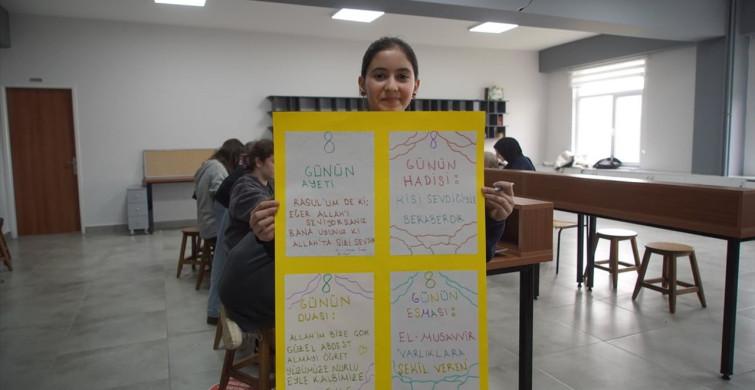 8
GÜNÜN
AYETİ
RASUL'UM DE Kİ;
EĞER ALLAH'I
SEVİYORSANIZ
BANA UYUNUZ Kİ
ALLAH'TA SİZİ SEVSİN
8
GÜNÜN
HADİSİ:
KİŞİ SEVDİĞİYLE
BERABERDİR
8
GÜNÜN
DUASI:
ALLAH'IM BİZE ÇOK
GÜZEL ABDEST
ALMAYI ÖĞRET
YÜZÜMÜZE NURLU
EYLE KALBİMİZE
8
GÜNÜN
ESMASI:
EL-MUSAVVİR
VARLIKLARA
ŞEKİL VEREN